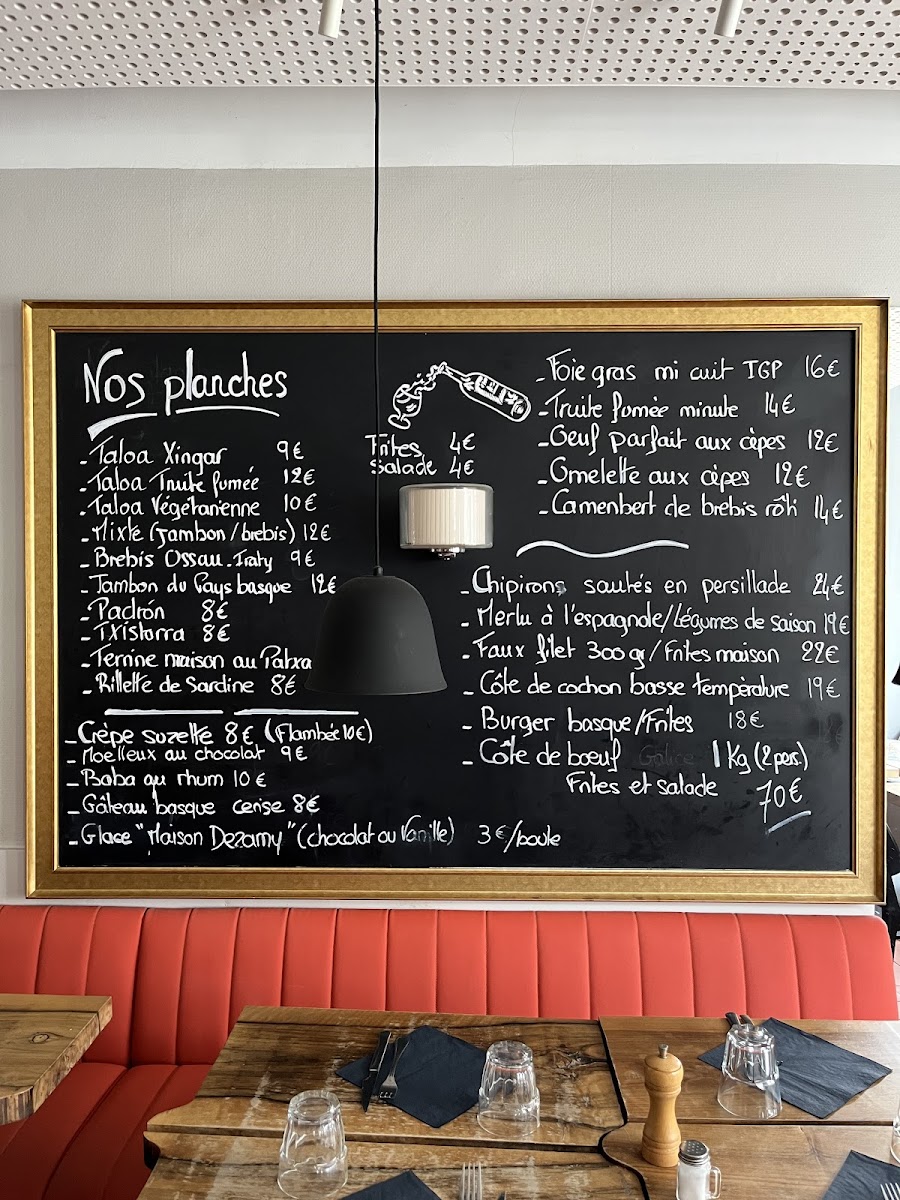 Nos planches
- Taloa Xingar 9€
- Taloa Truite fumée 12€
- Taloa Végétarienne 10€
- Mixte (Jambon/brebis) 12€
- Brebis Ossau-Iraty 9€
- Jambon du Pays basque 12€
- Padrón 8€
- Txistorra 8€
- Terrine maison au Patxa
- Rillette de Sardine 8€
- Crêpe suzette 8€ (Flambée 10€)
- Moelleux au chocolat 9€
- Baba au rhum 10€
- Gâteau basque cerise 8€
- Glace "Maison Dezamy" (chocolat ou Vanille) 3€/boule
Frites 4€
Salade 4€
- Foie gras mi cuit IGP 16€
- Truite fumée minute 14€
- Oeuf parfait aux cèpes 12€
- Omelette aux cèpes 12€
- Camembert de brebis rôti 14€
- Chipirons sautés en persillade 24€
- Merlu à l'espagnole/Légumes de saison 19€
- Faux filet 300 gr/Frites maison 22€
- Côte de cochon basse température 19€
- Burger basque/Frites 18€
- Côte de boeuf Galice 1 Kg (2 pers.)
Frites et salade 70€